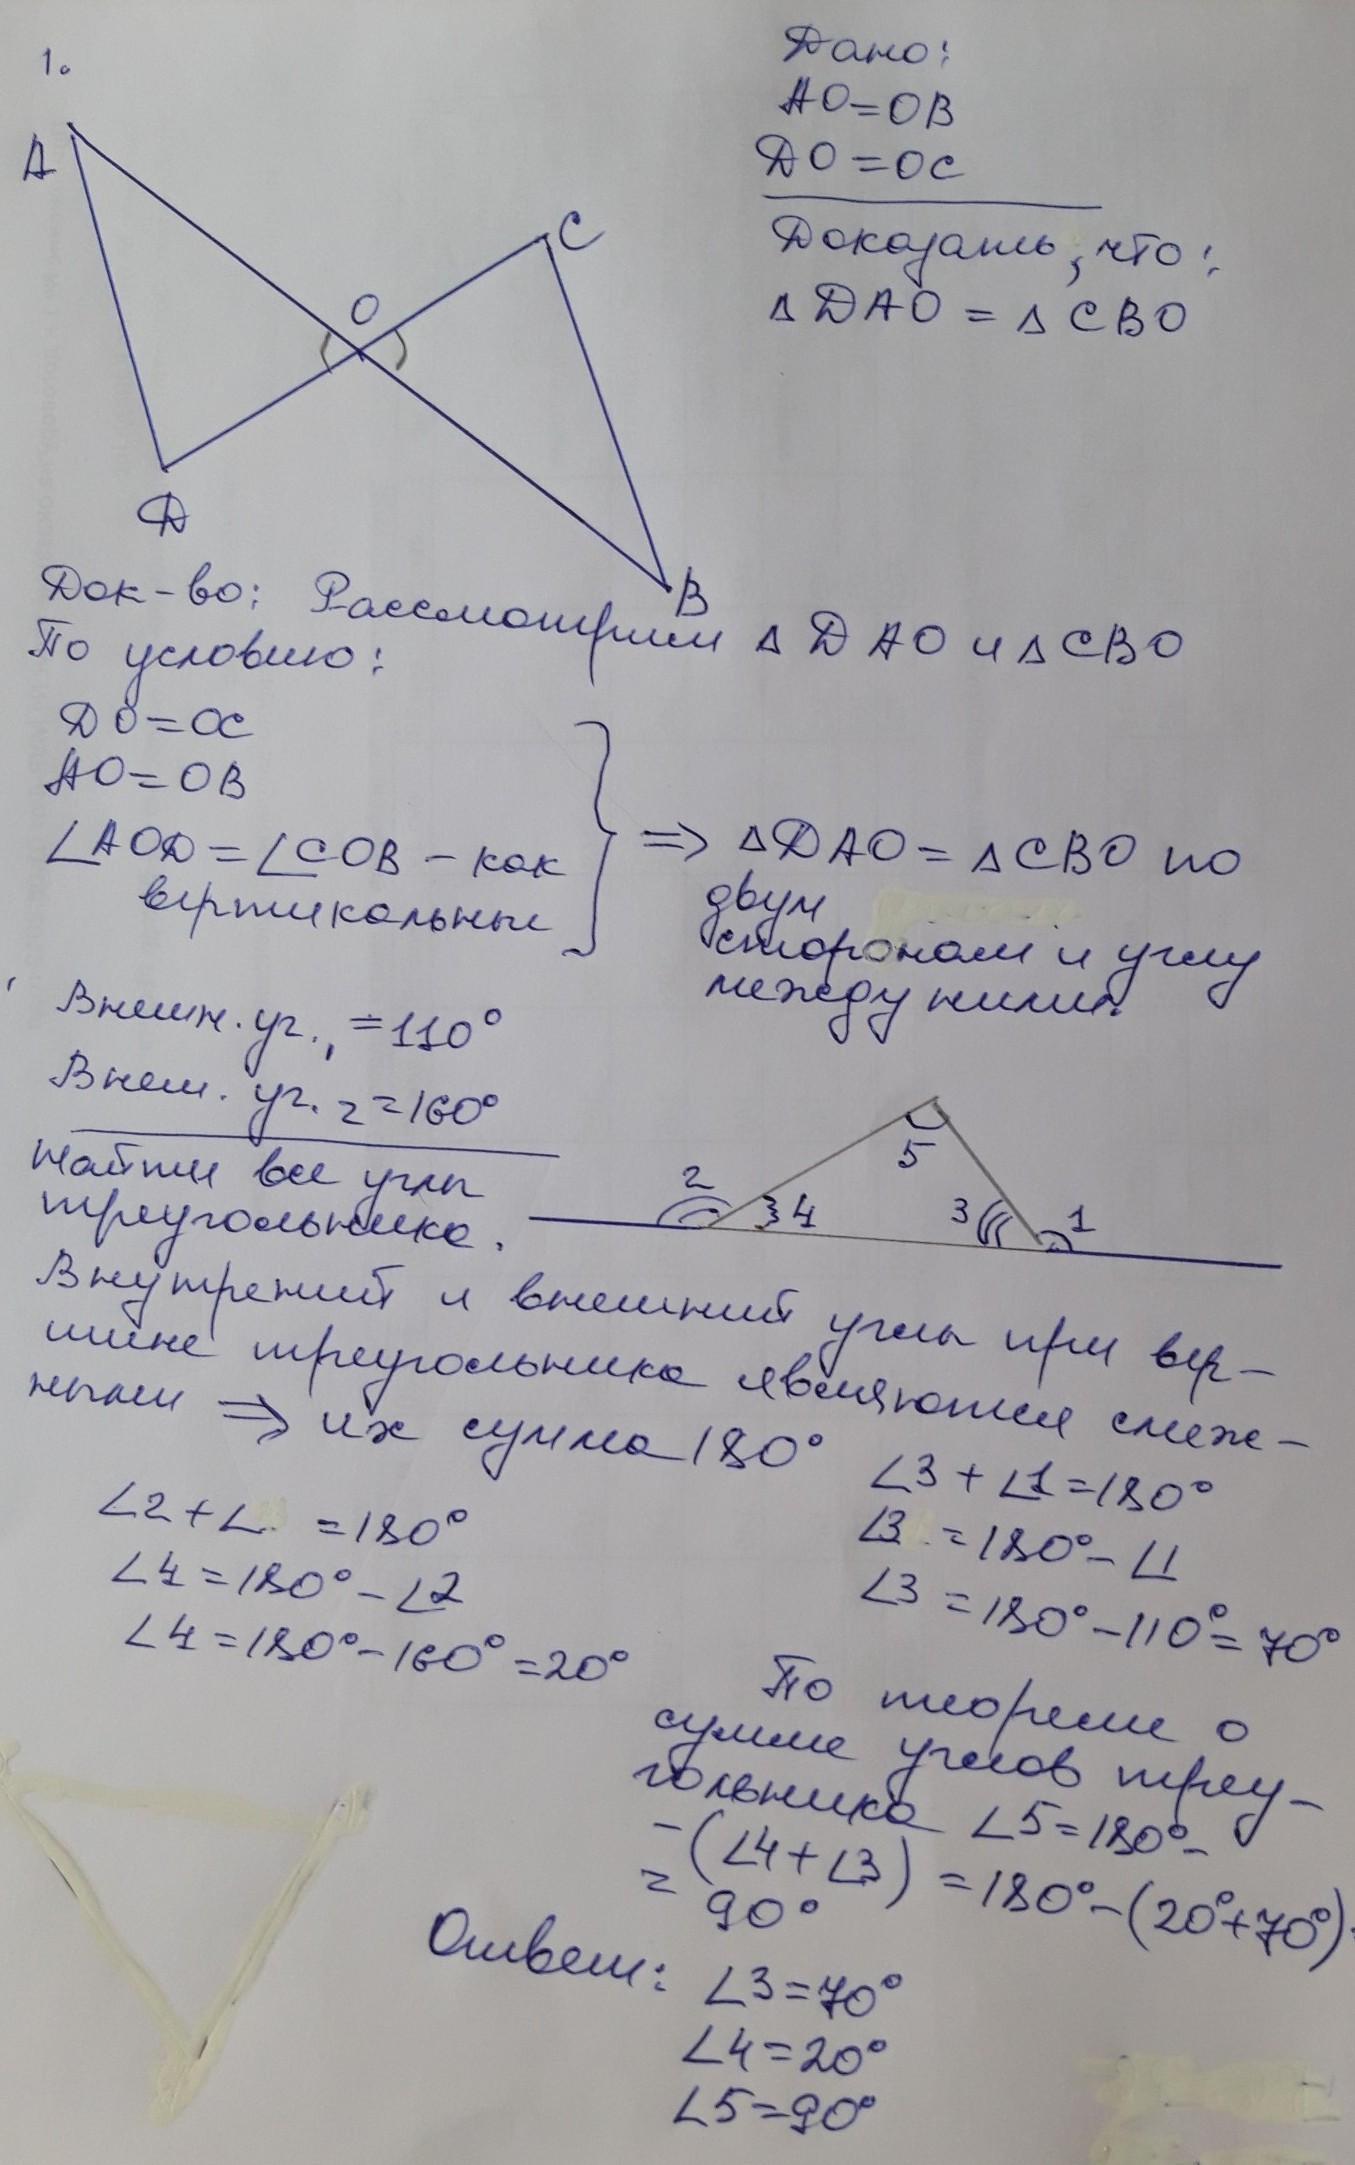 1.
A
C
O
D
B
Дано:
AO=OB
DO=OC
Доказать, что:
△DAO=△CBO
Док-во: Рассмотрим △DAO и △CBO
По условию:
DO=OC
AO=OB
∠AOD=∠COB – как
вертикальные
⇒ △DAO=△CBO по
двум
сторонам и углу
между ними.
Внешн. уг.₁=110°
Внеш. уг.₂=160°
Найти все углы
треугольника.
2
4
5
3
1
Внутрений и внешний углы при вер-
шине треугольника являются смеж-
ными ⇒ их сумма 180°
∠2+∠ =180°
∠4=180°-∠2
∠4=180°-160°=20°
∠3+∠1=180°
∠3=180°-∠1
∠3=180°-110°=70°
По теореме о
сумме углов треу-
гольника ∠5=180°-
-(∠4+∠3)=180°-(20°+70°)=
=90°
Ответ: ∠3=70°
∠4=20°
∠5=90°